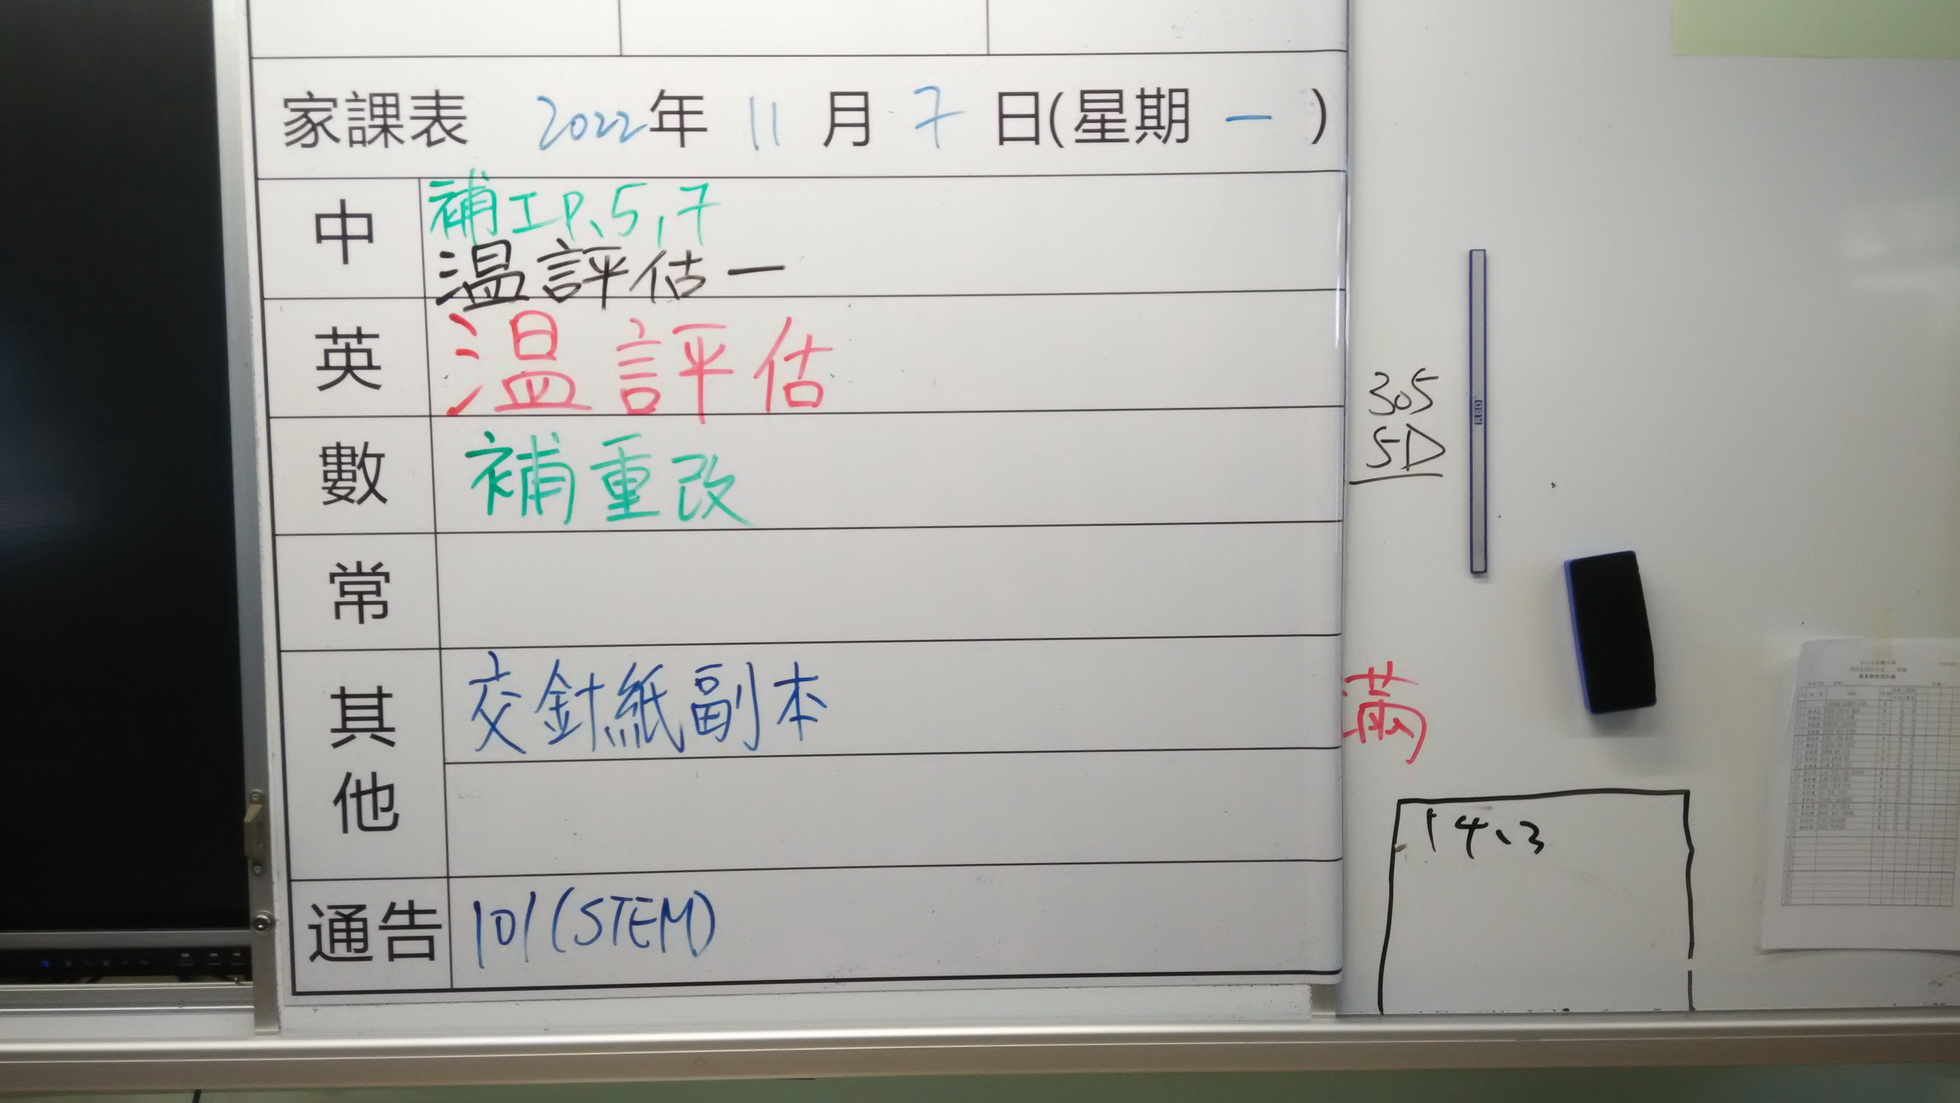 家課表 2022年 11 月 7 日(星期 一 )
中
補工P、5,7
温評估一
英
温評估
數
補重改
常
其他
交針紙副本
通告
101(STEM)
305
5D
14、3